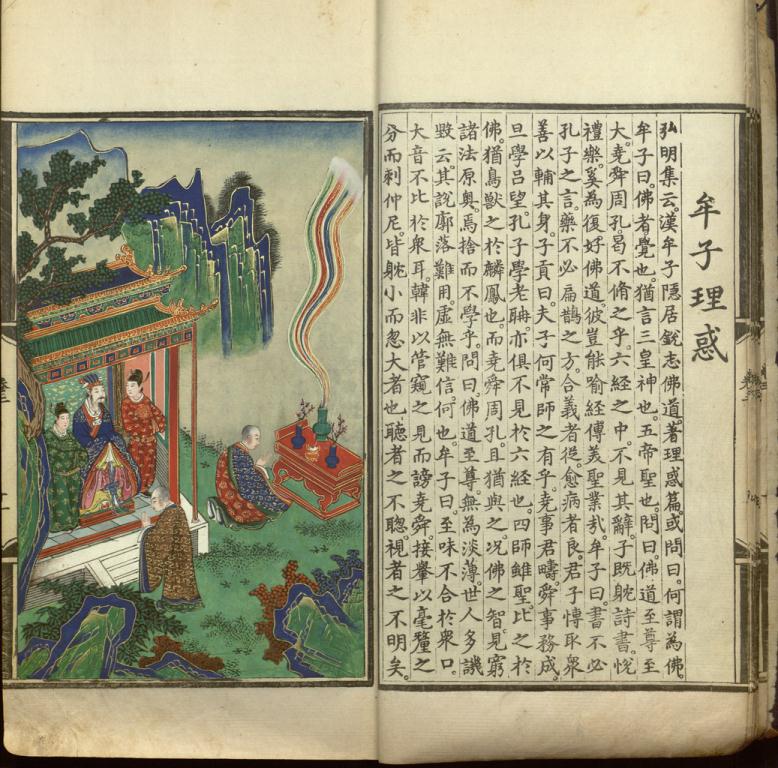 牟子理惑
弘明集云。漢牟子隱居銳志佛道。著理惑篇。或問曰。何謂為佛。
牟子曰。佛者覺也。猶言三皇神也。五帝聖也。問曰。佛道至尊至
大。堯舜周孔。曷不脩之乎。六經之中。不見其辭。子既躭詩書。悅
禮樂。奚為復好佛道。彼豈能喻經傳美聖業哉。牟子曰。書不必
孔子之言。藥不必扁鵲之方。合義者從。愈病者良。君子博取衆
善以輔其身。子貢曰。夫子何常師之有乎。堯事君疇。舜事務成。
旦學呂望。孔子學老聃。亦俱不見於六經也。四師雖聖。比之於
佛。猶鳥獸之於麟鳳也。而堯舜周孔。且猶與之。况佛之智。見窮
諸法原奧。焉捨而不學乎。問曰。佛道至尊。無為淡薄。世人多譏
毀云。其說廓落難用。虛無難信。何也。牟子曰。至味不合於衆口。
大音不比於衆耳。韓非以管窺之見而謗堯舜。接轝以毫釐之
分而刺仲尼。皆躭小而忽大者也。聽者之不聦。視者之不明矣。